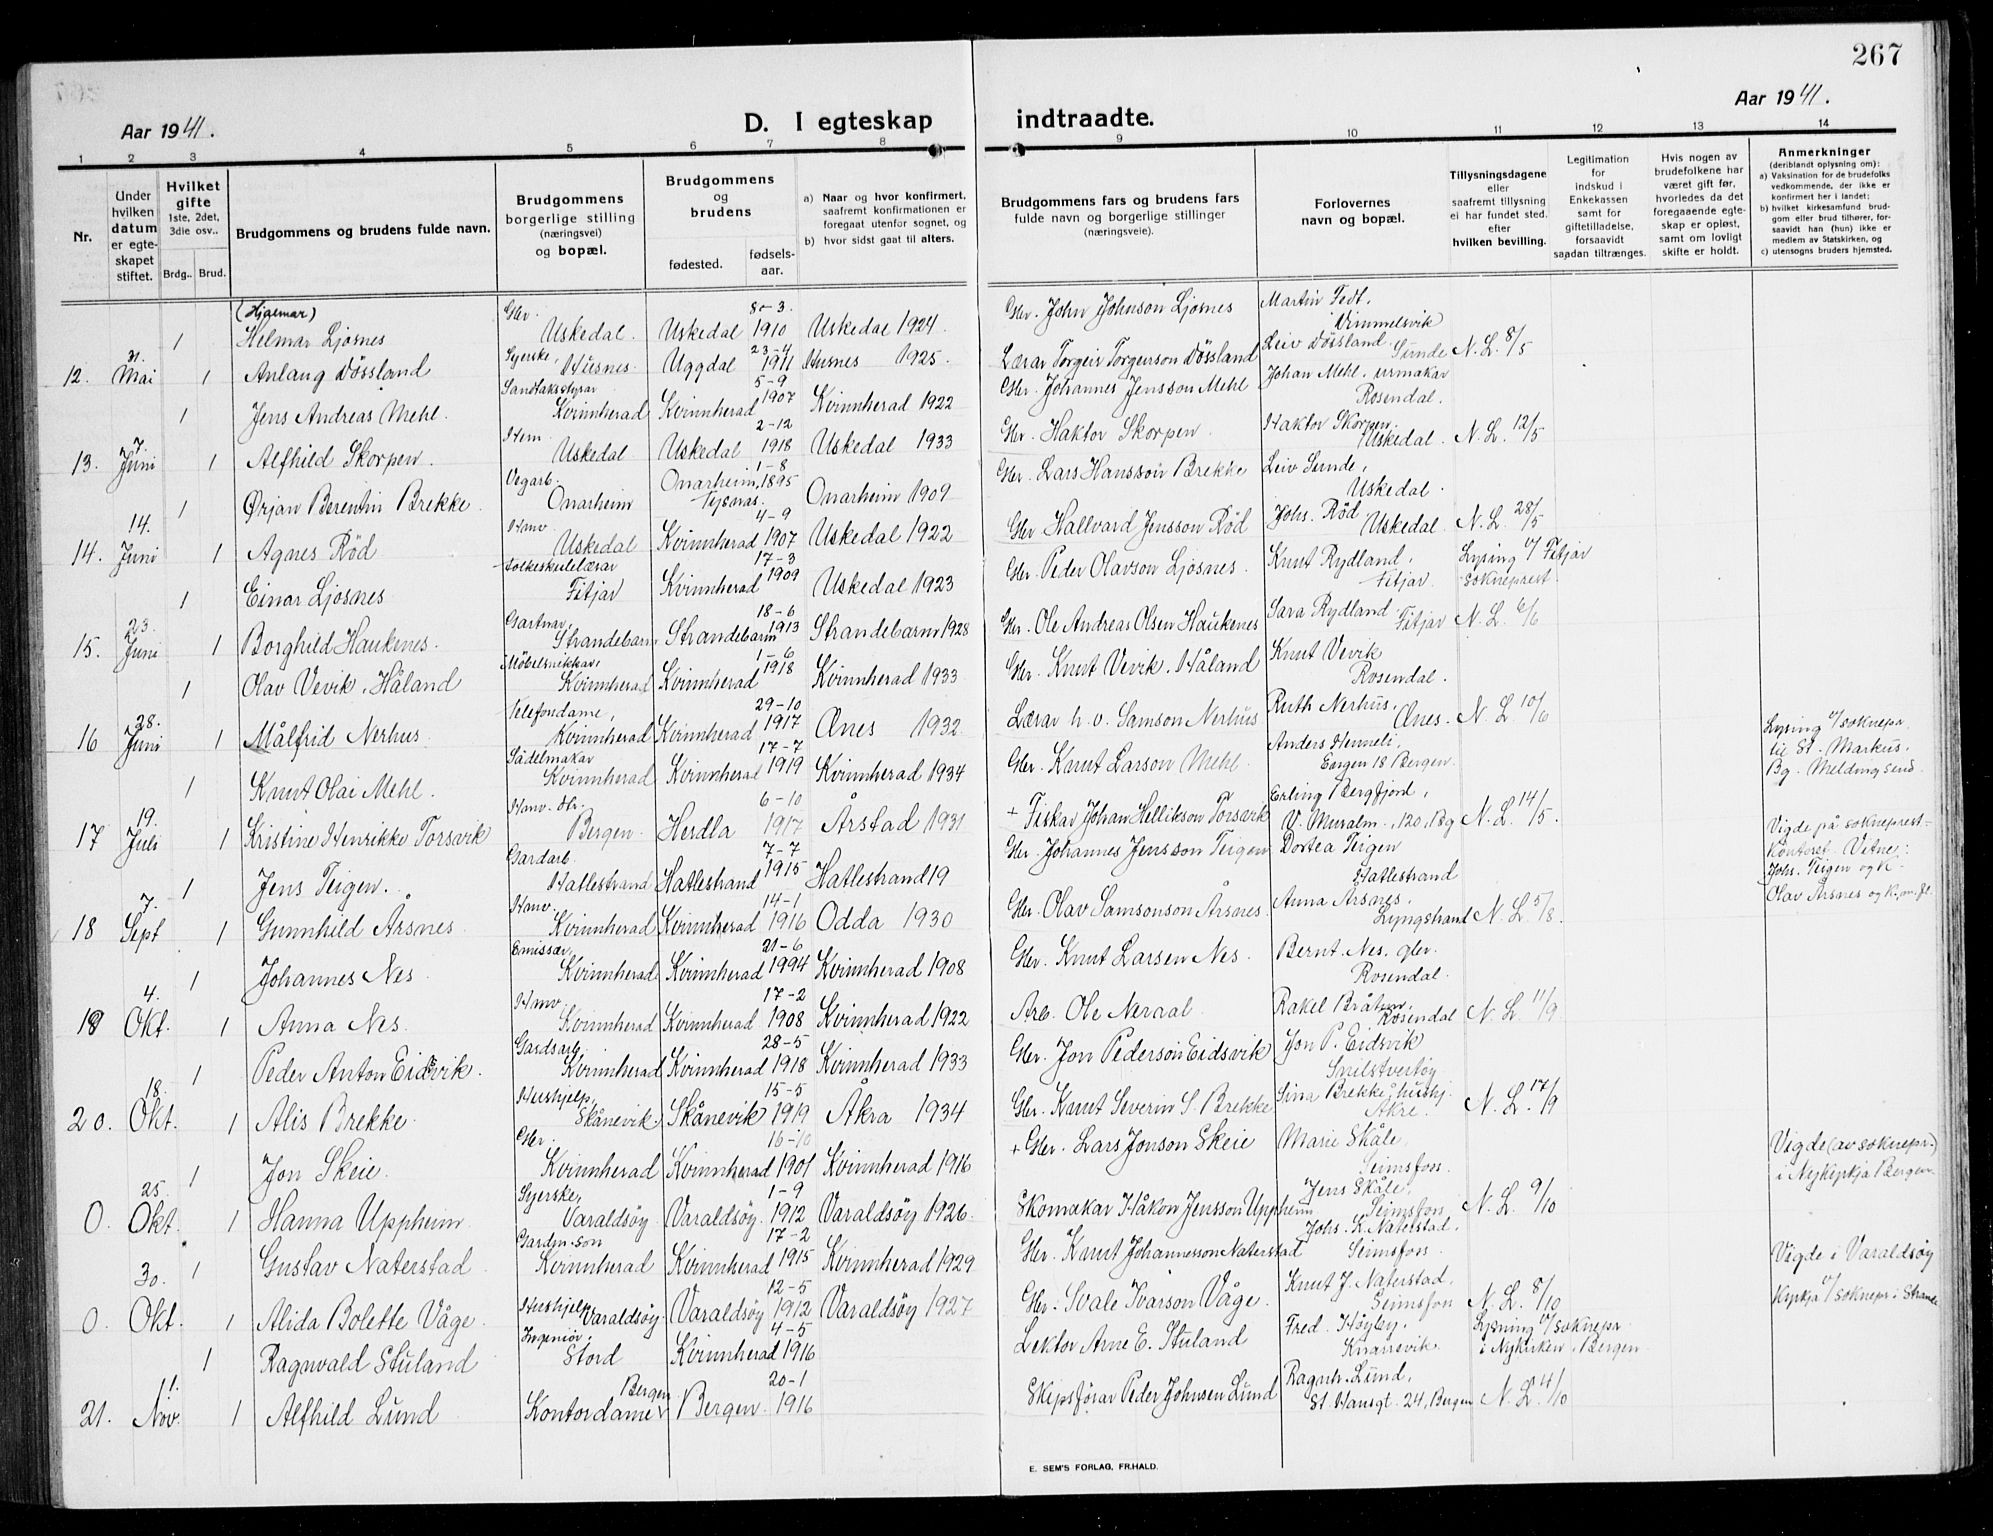 267
Aar 1941.
D. I egteskap indtraadte.
Aar 1941.
1 2 3 4 5 6 7 8 9 10 11 12 13 14
Nr.
Under hvilken datum er egteskapet stiftet.
Hvilket gifte 1ste, 2det, 3die osv..
Brdg.. Brud.
Brudgommens og brudens fulde navn.
Brudgommens borgerlige stilling (næringsvei) og bopæl.
Brudgommens og brudens
fødested. fødselsaar.
a) Naar og hvor konfirmert, saafremt konfirmationen er foregaat utenfor sognet, og
b) hvor sidst gaat til alters.
Brudgommens fars og brudens fars fulde navn og borgerlige stillinger (næringsveie).
Forlovernes navn og bopæl.
Tillysningsdagene eller saafremt tillysning ei har fundet sted. efter hvilken bevilling.
Legitimation for indskud i Enkekassen samt for giftetilladelse, forsaavidt saadan tiltrænges.
Hvis nogen av brudefolkene har været gift før, hvorledes da det foregaaende egteskap er opløst, samt om lovligt skifte er holdt.
Anmerkninger (deriblandt oplysning om):
a) Vaksination for de brudefolks vedkommende, der ikke er konfirmert her i landet;
b) hvilket kirkesamfund brudgom eller brud tilhører, forsaavidt han (hun) ikke er medlem av Statskirken, og
c) utensogns bruders hjemsted.
(Hjalmar)
1 Helmar Ljosnes Gbr. Uskedal. Uskedal 8-3. 1910 Uskedal 1924 Gbr. John Johnson Ljosnes Martin Fedt, Dimmelsvik
12. 31. Mai 1 Anlaug Døssland Syerske, Husnes. Uggdal 23-4 1911 Husnes 1925. Lærar Torgeir Torgerson Døssland Leiv Døssland. Sunde N. L. 8/5
1 Jens Andreas Mehl. Sandtaksstyrar Kvinnherad Kvinnherad 5-9 1907 Kvinnherad 1922 Gbr. Johannes Jensson Mehl Johan Mehl, urmakar Rosendal.
13. 7. Juni 1 Alfhild Skorpen. Hem. Uskedal Uskedal 2-12 1918 Uskedal 1933 Gbr. Haktor Skorpen. Haktor Skorpen, Uskedal. N. L. 12/5
1 Ørjan Berentin Brekke. Vegarb. Onarheim Onarheim, Tysnes. 1-8 1895 Onarheim 1909 Gbr. Lars Hansson Brekke Leiv Sunde, Uskedal.
14. 14. Juni 1 Agnes Rød Hmv. Uskedal Kvinnherad 4-9 1907 Uskedal 1922 Gbr Hallvard Jensson Rød Johs. Rød Uskedal N. L. 28/5
1 Einar Ljosnes Folkeskulelærar Fitjar Kvinnherad 17-3 1909 Uskedal 1923 Gbr. Peder Olavson Ljosnes. Knut Rydland, Fitjar. Lysing v/ Fitjar sokneprest.
15. 23. Juni 1 Borghild Haukenes. Gartnar, Strandebarm Strandebarm 18-6 1913 Strandebarm 1928 Gbr. Ole Andreas Olsen Haukenes Sara Rydland Fitjar N. L. 6/6
1 Olav Vevik, Håland Møbelsnikkar, Kvinnherad Kvinnherad 1-6 1918 Kvinnherad 1933 Gbr. Knut Vevik, Håland Knut Vevik Rosendal.
16 28. Juni 1 Målfrid Nerhus. Telefondame, Kvinnherad Kvinnherad 29-10 1917 Ænes 1932 Lærar h. v. Samson Nerhus Ruth Nerhus, Ænes. N. L. 10/6 Lysing v/soknepr. til St. Markus. Bg. Melding send.
1 Knut Olai Mehl. Sadelmakar Kvinnherad Kvinnherad 17-7 1919 Kvinnherad 1934 Gbr. Knut Larson Mehl Anders Henneli, Engen 18 Bergen.
17 19. Juli 1 Kristine Henrikke Torsvik Hmv. Bergen. Herdla 6-10 1917 Årstad 1931 + Fiskar Johan Hellikson Torsvik Erling Bergfjord, V. Muralm. 120, Bg N. L. 14/5. Vigde på sokneprestkontoret. Vitne: Johs. Teigen og K. Olav Årsnes og K.
1 Jens Teigen. Gardarb. Hatlestrand Hatlestrand 7-7 1915 Hatlestrand 19 Gbr. Johannes Jensson Teigen Dortea Teigen Hatlestrand
18 7. Sept 1 Gunnhild Årsnes Hmv. Kvinnherad Kvinnherad 14-1 1916 Odda 1930 Gbr. Olav Samsonson Årsnes. Anna Årsnes. Lyngstrand N. L. 5/8.
1 Johannes Nes. Emissær, Kvinnherad Kvinnherad 21-6 1994 Kvinnherad 1908 Gbr. Knut Larsen Nes. Bernt Nes, gbr. Rosendal.
19 4. Okt. 1 Anna Nes. Hmv. Kvinnherad Kvinnherad 17-2 1908 Kvinnherad 1922 Arb. Ole Neraal. Rakel Bråtun, Rosendal N. L. 11/9
1 Peder Anton Eidsvik. Gardsarb. Kvinnherad Kvinnherad 28-5 1918 Kvinnherad 1933 Gbr. Jon Pederson Eidsvik Jon P. Eidsvik Snilstveitøy
20. 18. Okt. 1 Alis Brekke Hushjelp, Skånevik Skånevik 15-5 1919 Åkra 1934 Gbr. Knut Severin S. Brekke Sina Brekke, hushj. Åkre. N. L. 17/9
1 Jon Skeie. Gbr. Kvinnherad Kvinnherad 16-10 1901 Kvinnherad 1916 + Gbr. Lars Jonson Skeie Marie Skåle, Seimsfoss. Vigde (av soknepr.) i Nykyrkja Bergen
0. 25. Okt. 1 Hanna Uppheim Syerske, Varaldsøy Varaldsøy 1-9 1912 Varaldsøy 1926. Skomakar Håkon Jensson Uppheim Jens Skåle, Seimsfoss N. L. 9/10
1 Gustav Naterstad Gardm.son Kvinnherad Kvinnherad 17-2 1915 Kvinnherad 1929 Gbr. Knut Johannesson Naterstad Johs. K. Naterstad, Seimsfoss. Vigde i Varaldsøy kyrkja v/ soknepr. i Strandeb.
0. 30. Okt. 1 Alida Bolette Våge. Hushjelp Varaldsøy. Varaldsøy 12-5 1912 Varaldsøy 1927 Gbr. Svale Ivarson Våge. Knut J. Naterstad, Seimsfoss N. L. 8/10
1 Ragnvald Stuland Ingeniør, Stord Kvinnherad 4-5 1916 Lektor Arne E. Stuland Fred. Høyby, Knarrevik Lysning v/ soknepr. i Nykirken, Bergen.
21. 1. Nov. 1 Alfhild Lund Bergen Kontordame v Bergen. 20-1 1916 Skipsførar Peder Johnsen Lund Ragnh. Lund, St. Hansgt. 24, Bergen N. L. 4/10
E. SEM'S FORLAG, FR.HALD.